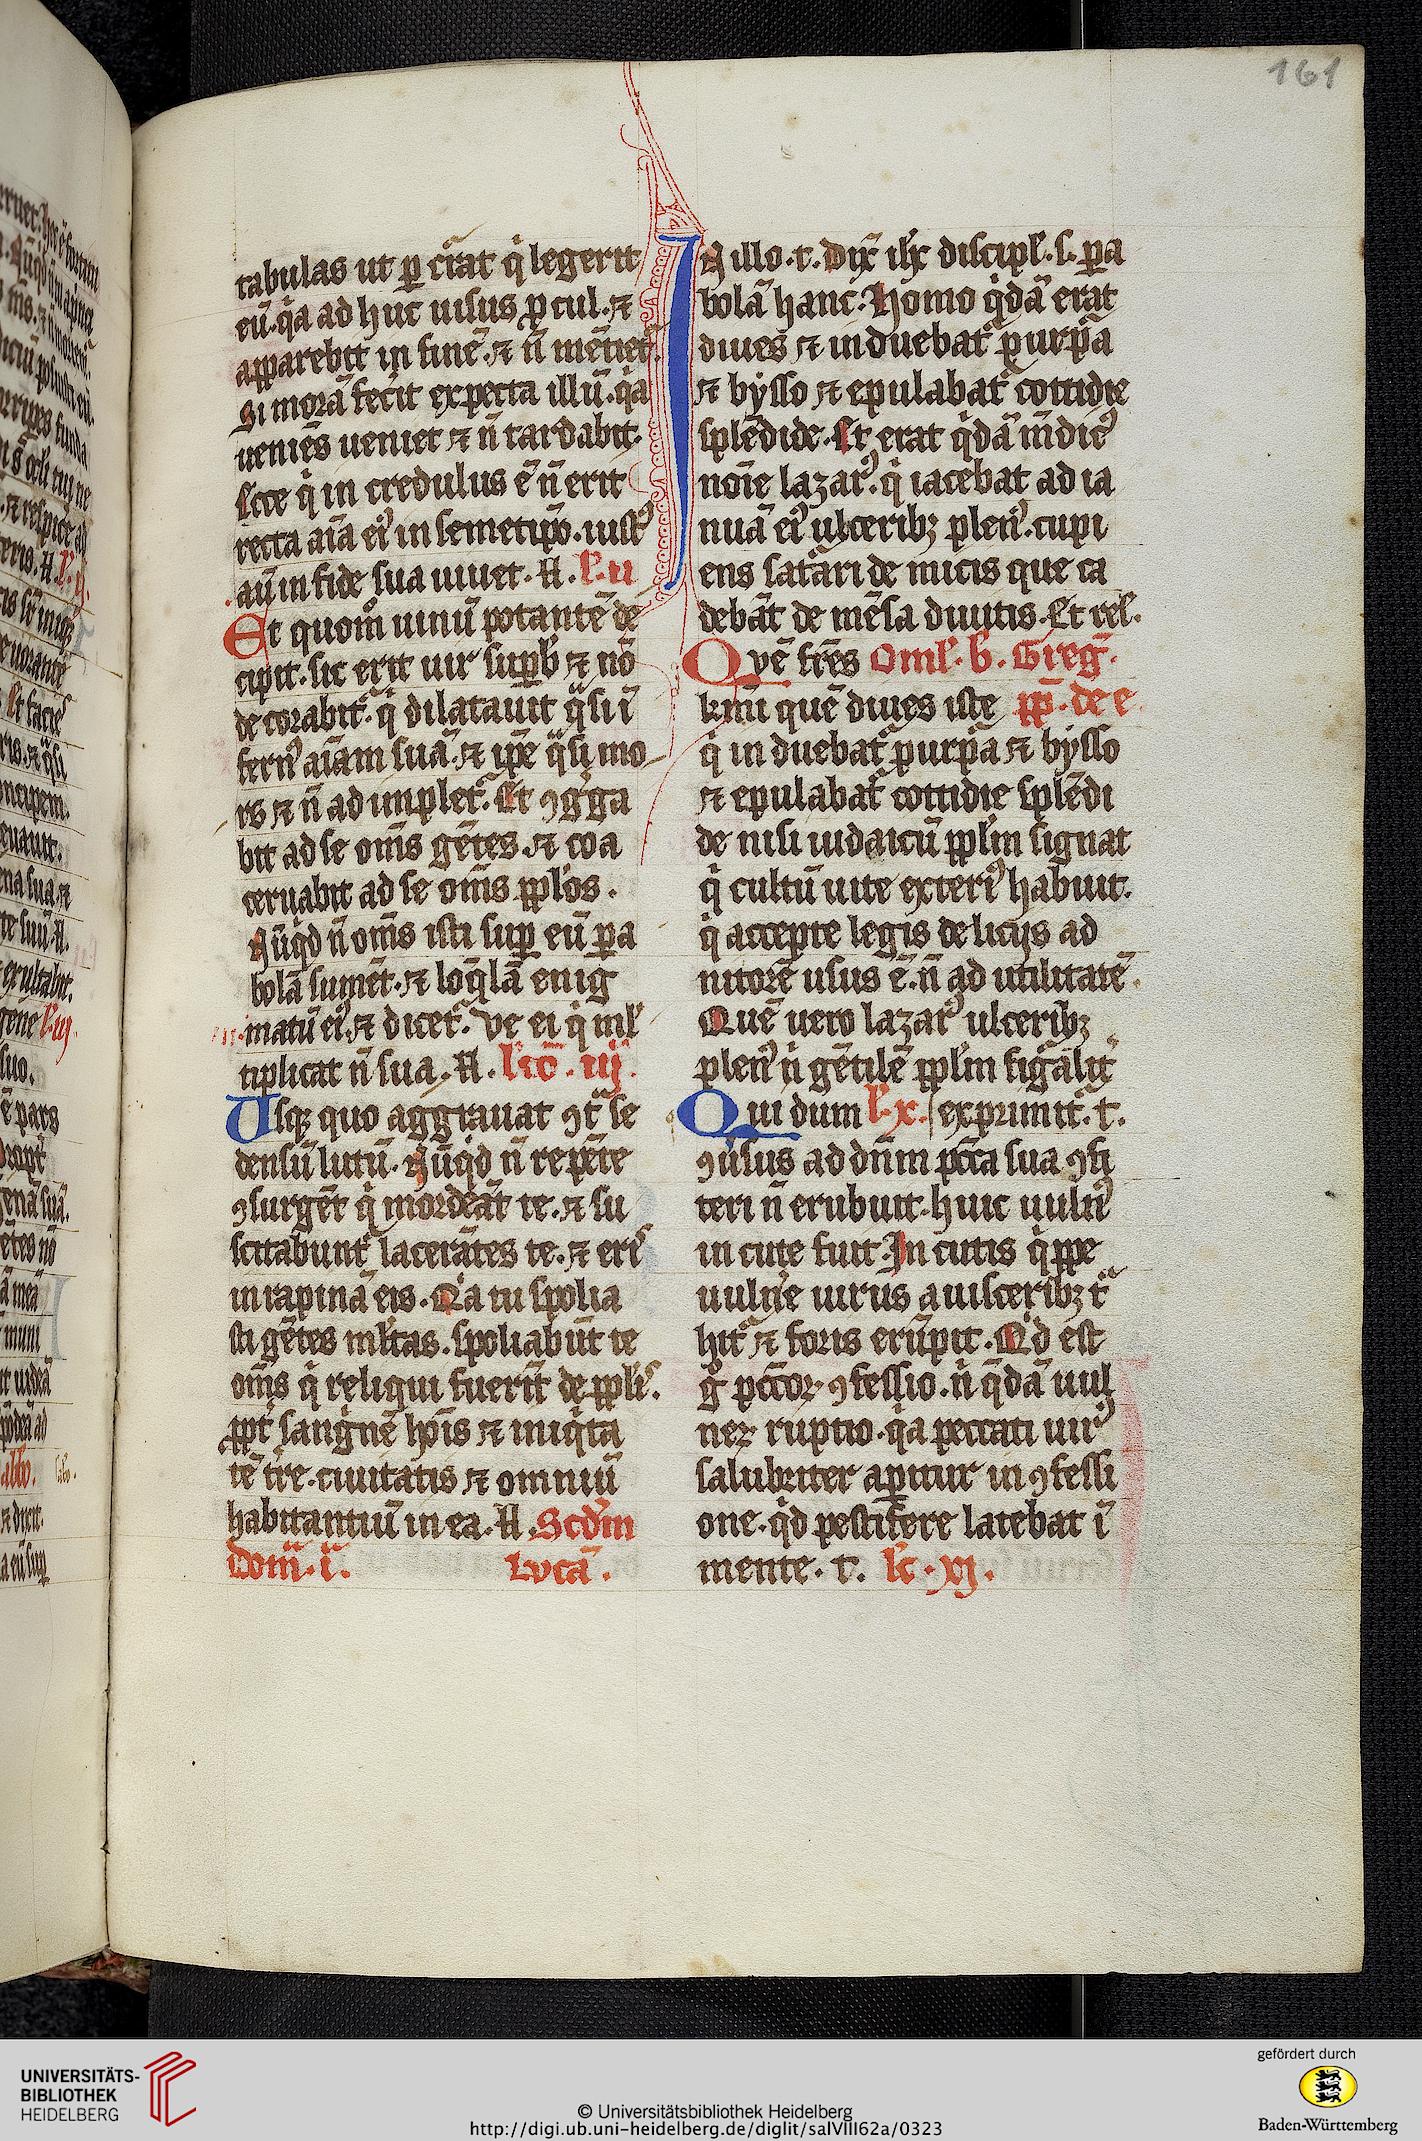 161
tabulas ut ꝑ cr̄at q̇ legerit
eū. q̇a ad huc uisus ꝓcul. ⁊
apparebit in finē. ⁊ n̄ mētiet᷑.
Si morā fecit expecta illū. q̇a
ueniēs ueniet ⁊ n̄ tardabit.
Ecce q̇ in credulus ē n̄ erit
recta aīa eiꝰ in semetip̄o. iustꝰ
.au᷑ in fide sua uiuet. R. l̓. ii
Et quom̊ uinū potantē de
cipit. sic erit uir suꝑb̓ ⁊ nō
decorabit᷑. q̇ dilatauit q̈si ī
fernꝰ aīam suā. ⁊ ip̄e q̈si mo
rs ⁊ n̄ ad implet᷑. Et ꝯg̓ga
bit ad se om̄s gētes. ⁊ coa
ceruabit ad se om̄s ppl̓os.
Nūq̇d n̄ om̄s isti suꝑ eū ꝑa
bolā sumēt. ⁊ loq̄lā enig
matū eiꝰ. ⁊ dicet᷑. Ve ei q̇ ml̓
tiplicat n̄ sua. R. l̓cō. iij.
Usq̨ quo aggrauat ꝯt᷑ se
densū lutū. Nūq̇d n̄ repēte
ꝯsurgēt q̇ mordeāt te. ⁊ su
scitabunt᷑ lacerātes te. ⁊ erꝰ
in rapinā eis. Qa tu spolia
sti gētes ml̓tas. spoliabūt te
om̄s q̇ reliqui fuerīt de ppl̓is.
ppt᷑ sang̓nē hoīs ⁊ iniq̇ta
tē t᷑re. ciuitatis ⁊ omniū
habitantiū in ea. R. Scd̓m
Dom̄. ī. Lucā.
In illo. t. Dix̄ ih̄c discipl̓. s. ꝑa
bolā hanc. Homo q̇dā erat
diues ⁊ induebat᷑ purp̄a
⁊ bysso ⁊ epulabat᷑ cottidie
splēdide. Et erat q̇dā m̄dicꝰ
noīe lazarꝰ. q̇ iacebat ad ia
nuā eiꝰ ulceribꝫ plenꝰ. cupi
ens sat᷑ari de micis que ca
debāt de mēsa diuitis. Et rel̓.
Quē fr̄es Oml̓. b̓. Greg̓.
k̄mi quē diues iste pp̄. de e
q̇ in duebat᷑ purp̄a ⁊ bysso
⁊ epulabat᷑ cottidie splēdi
de nisi iudaicū ppl̓m signat
q̇ cultū uite exteriꝰ habuit.
q̇ accepte legis delicijs ad
nitorē usus ē. n̄ ad utilitatē.
Quē uero lazarꝰ ulceribꝫ
plenꝰ n̓ gētilē ppl̓m fig᷑alit᷑
Qui dum l̓. x. exprimit᷑. t.
ꝯuˀsus ad dn̄m pctā sua ꝯfi
teri n̄ erubuit. huic uulnꝰ
in cute fuit. In cutis q̇ppe
uulnˀe uirus a uisceribꝫ t᷑
hit᷑ ⁊ foris erūpit. Qd̓ est
g̊ pctōꝝ ꝯfessio. n̓ q̄dā uul
neꝝ ruptio. q̇a peccati uirꝰ
salubriter aꝑitur in ꝯfessi
one. q̇d pestifere latebat ī
mente. t. l̓c. xj.
UNIVERSITÄTS-
BIBLIOTHEK
HEIDELBERG
© Universitätsbibliothek Heidelberg
http://digi.ub.uni-heidelberg.de/diglit/salVIII62a/0323
gefördert durch
Baden-Württemberg